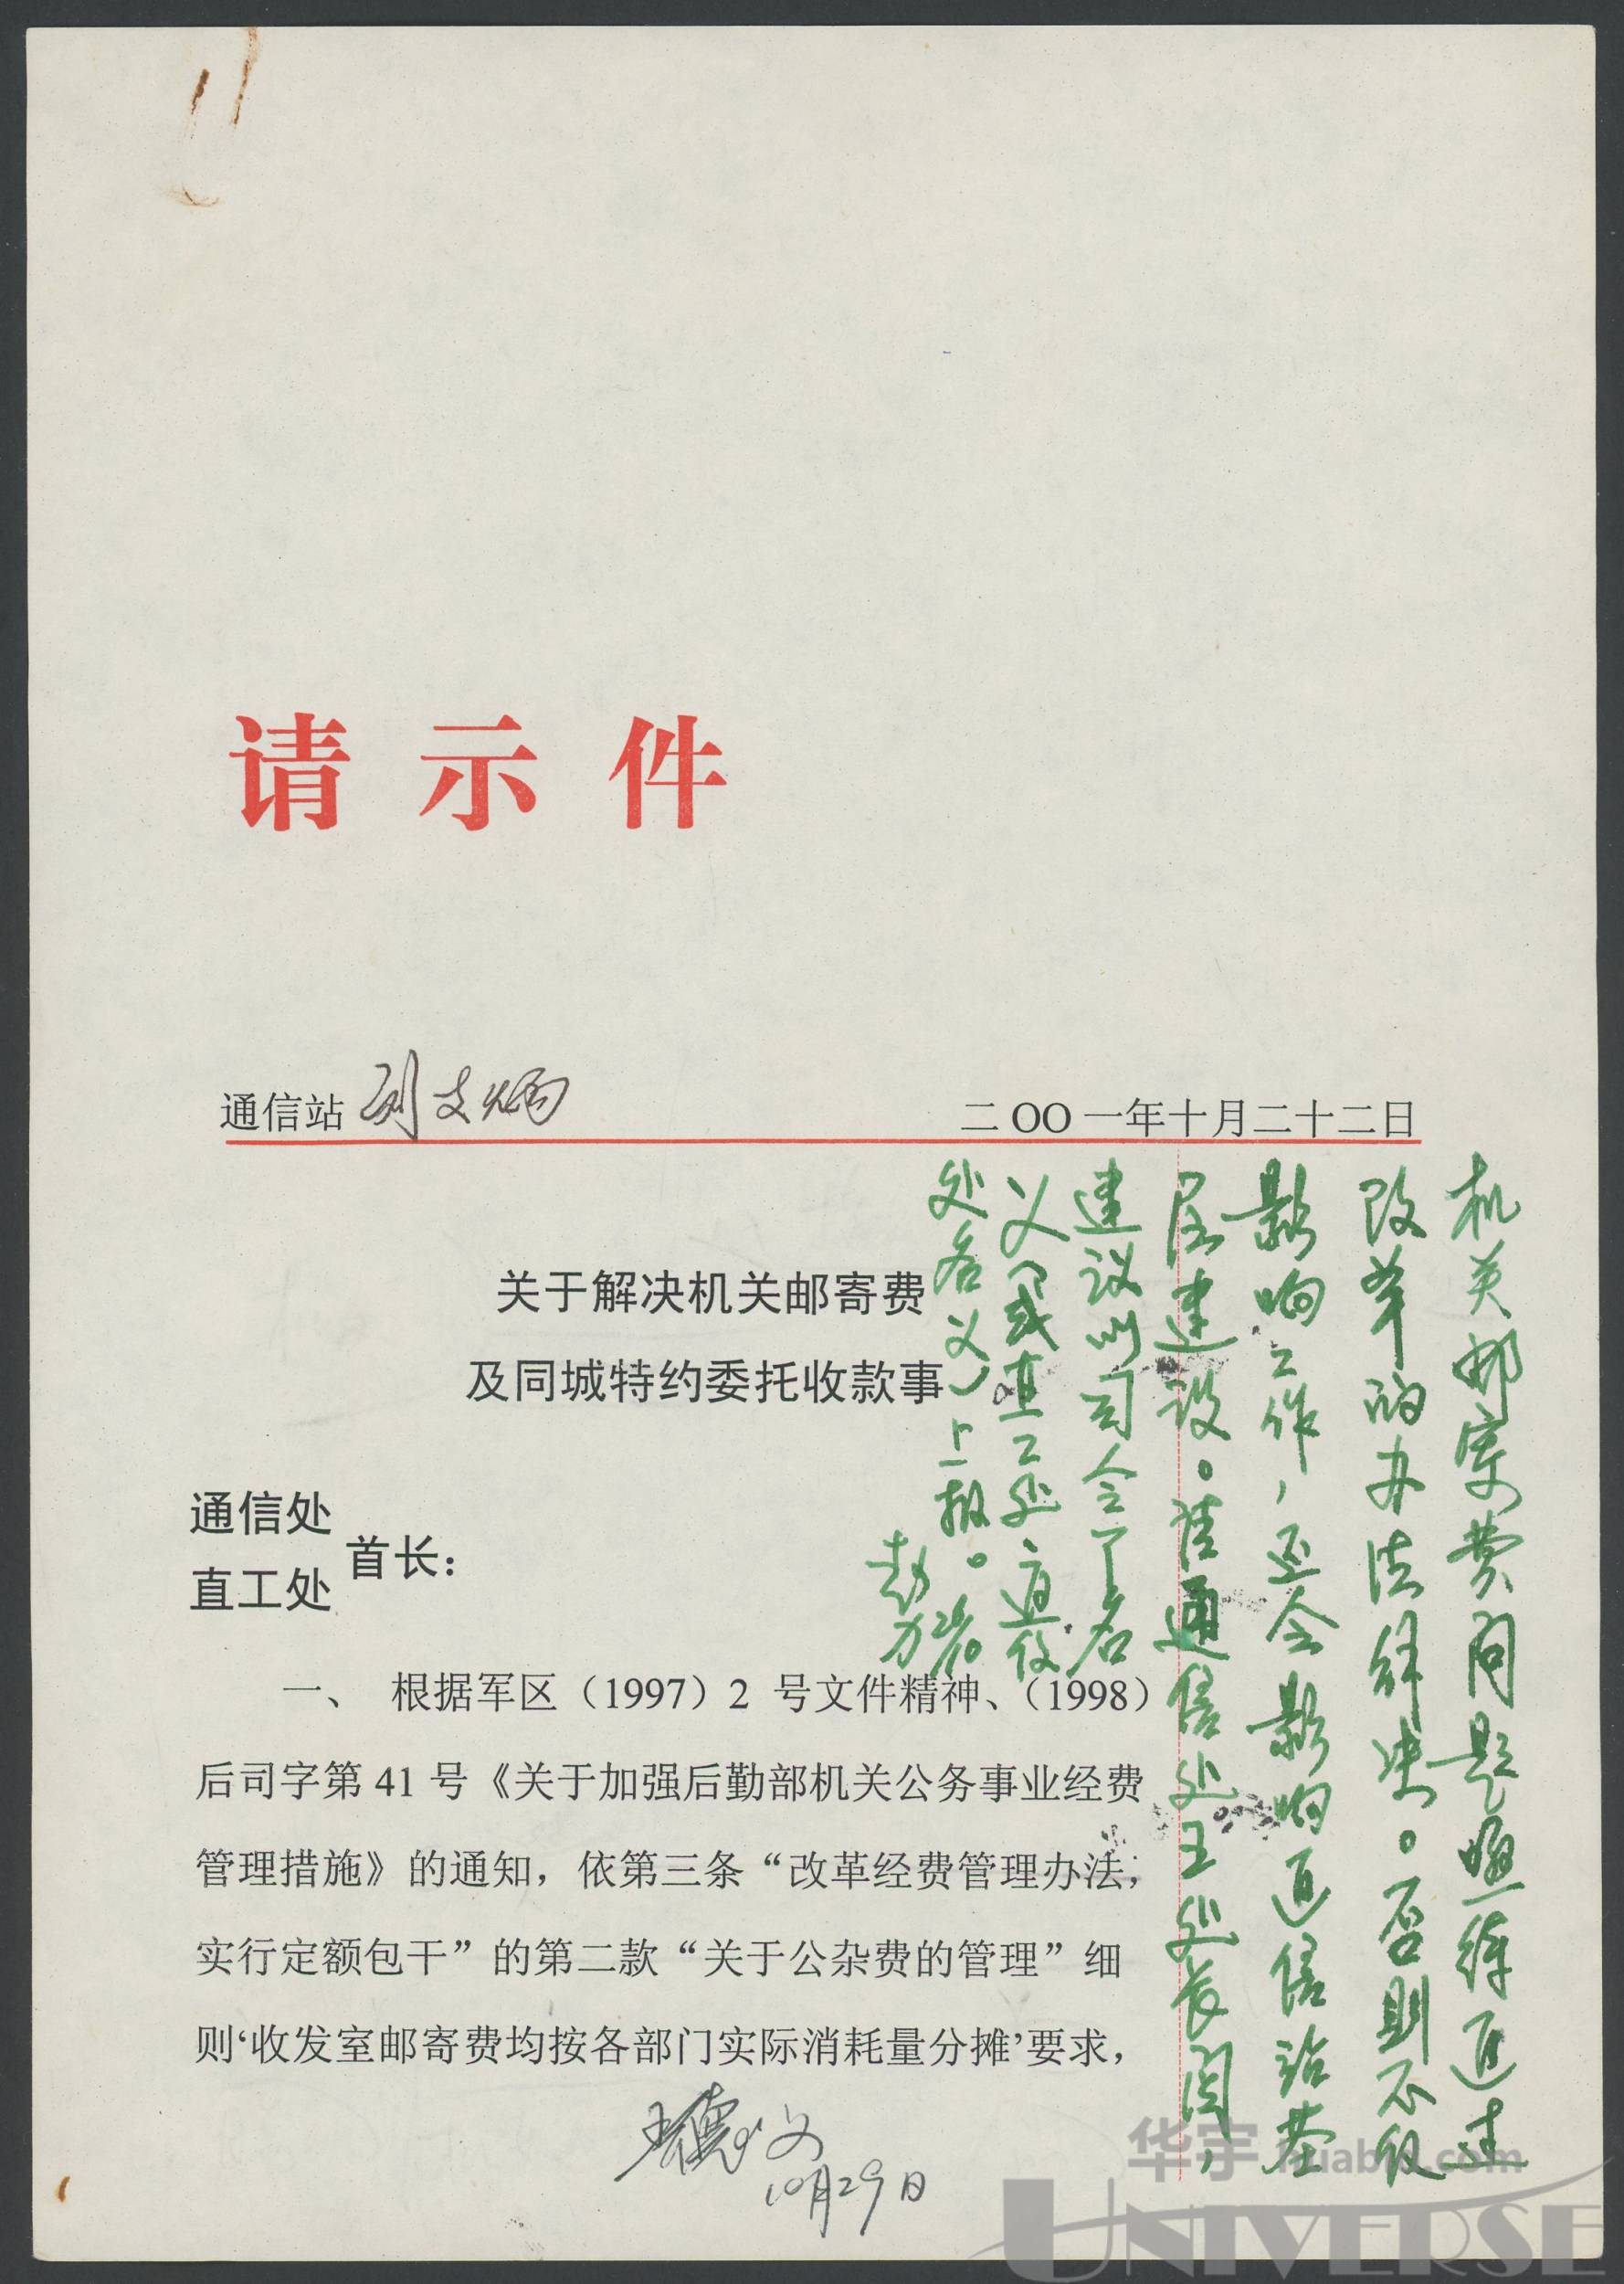 请示件
通信站 刘文炳
二OO一年十月二十二日
关于解决机关邮寄费
及同城特约委托收款事
通信处
直工处
首长：
一、 根据军区（1997）2 号文件精神、（1998）
后司字第 41 号《关于加强后勤部机关公务事业经费
管理措施》的通知，依第三条“改革经费管理办法，
实行定额包干”的第二款“关于公杂费的管理”细
则‘收发室邮寄费均按各部门实际消耗量分摊’要求，
机关邮寄费问题 通过
改革的办法解决。否则不仅
影响工作，还会影响通信站基
层建设。请通信处王处长阅，
建议以司令了名
义（或直工处、通信
处名义）上报。
王德文
10月29日
华宇 huabid.com
UNIVERSE